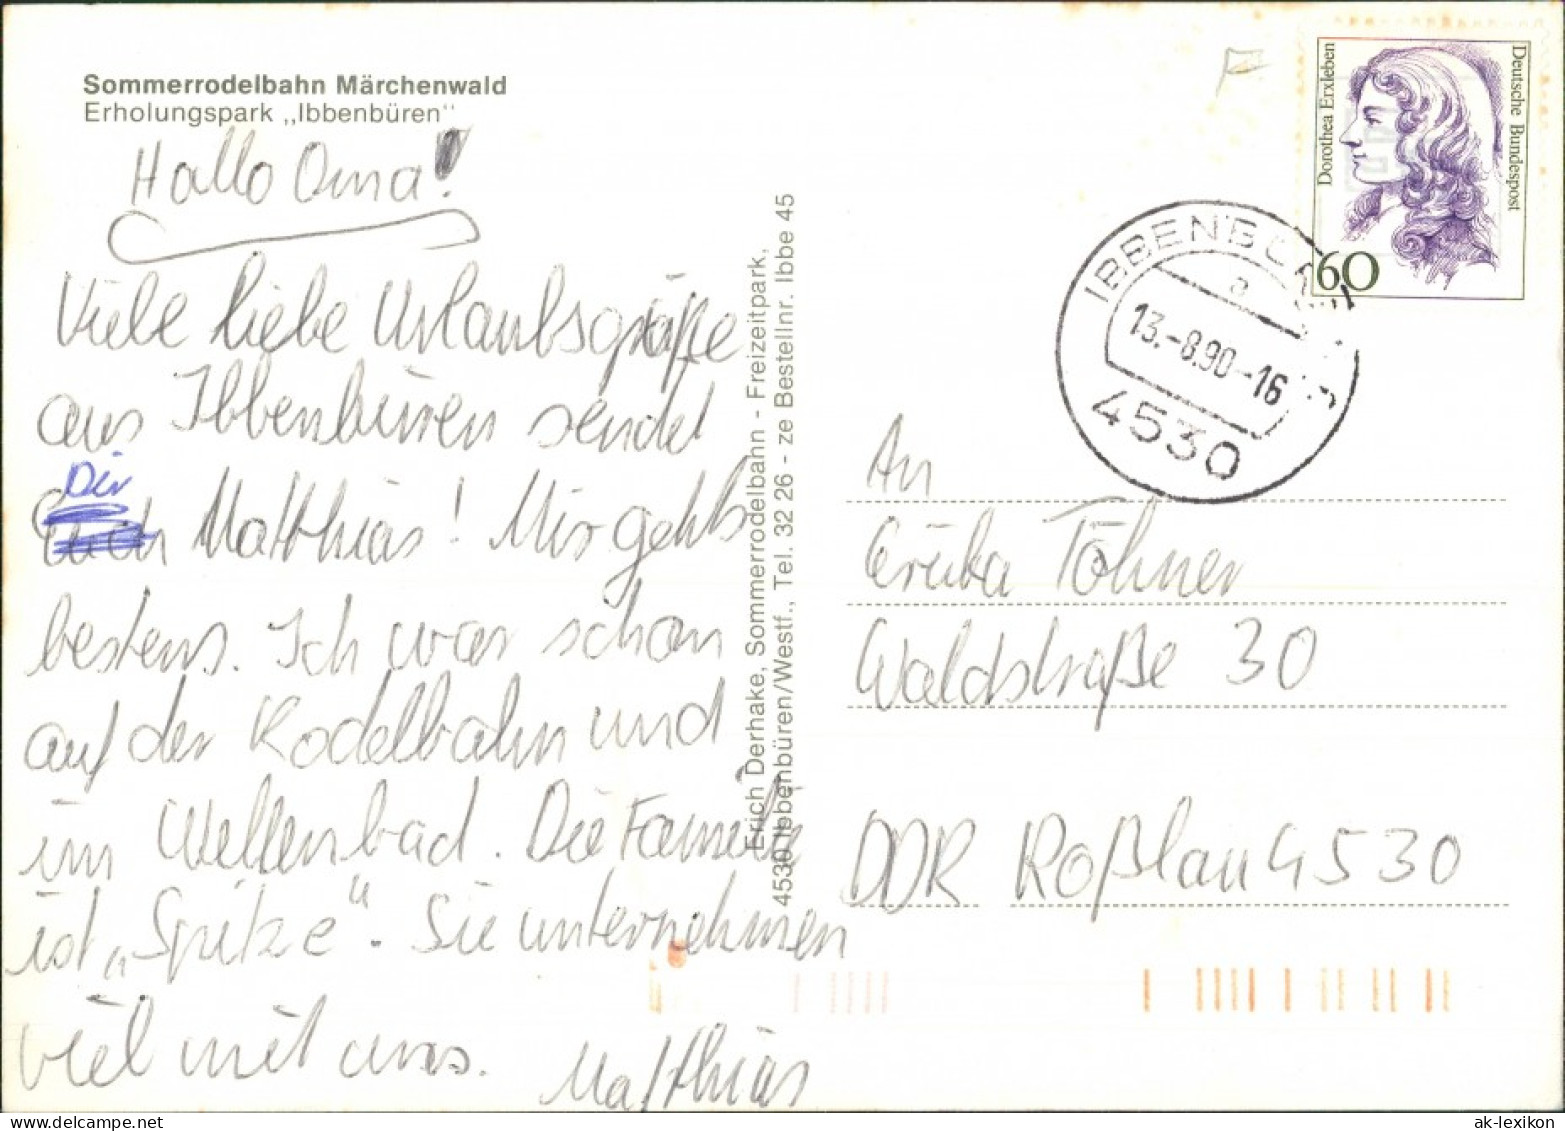 Sommerrodelbahn Märchenwald
Erholungspark „Ibbenbüren"
Hallo Oma!
Viele liebe Urlaubsgrüße
aus Ibbenbüren sendet
Dir
Euch Matthias! Mir gehts
bestens. Ich war schon
auf der Rodelbahn und
im Wellenbad. Die Familie
ist „Spitze". Sie unternehmen
viel mit uns.
Matthias
Erich Derhake, Sommerrodelbahn - Freizeitpark,
4530 Ibbenbüren/Westf., Tel. 32 26 - ze Bestellnr. Ibbe 45
F
Dorothea Erxleben
Deutsche Bundespost
60
IBBENBÜREN
a
13.-8.90-16
4530
An
Erika Töhner
Waldstraße 30
DDR Roßlau 4530
ak-lexikon